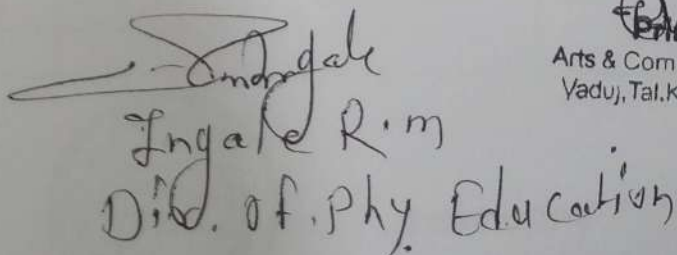 Arts & Com
Vaduj, Tal.K
Ingale R.m
Did. of. Phy. Education